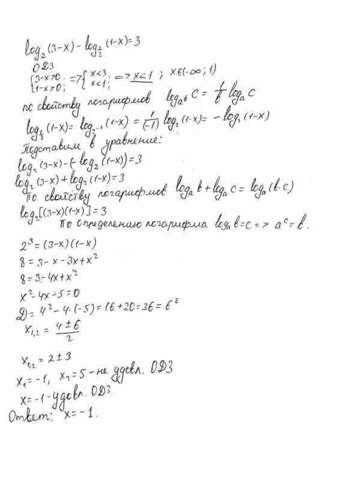 log₂(3-x) - log_{1/2}(1-x) = 3
ОДЗ
{3-x>0; 1-x>0; => {x<3; x<1; => x<1; x∈(-∞; 1)
по свойству логарифмов log_{a^b} C = 1/b log_a C
log_{1/2}(1-x) = log_{2^{-1}}(1-x) = 1/(-1) log₂(1-x) = -log₂(1-x)
Подставим в уравнение:
log₂(3-x) - (-log₂(1-x)) = 3
log₂(3-x) + log₂(1-x) = 3
По свойству логарифмов log_a b + log_a c = log_a(b·c)
log₂[(3-x)(1-x)] = 3
По определению логарифма log_a b = c => a^c = b.
2³ = (3-x)(1-x)
8 = 3-x-3x+x²
8 = 3-4x+x²
x²-4x-5=0
D = 4²-4·(-5) = 16+20 = 36 = 6²
x_{1,2} = (4±6)/2
x_{1,2} = 2±3
x₁ = -1, x₂ = 5 - не удовл. ОДЗ
x = -1 - удовл. ОДЗ
Ответ: x = -1.